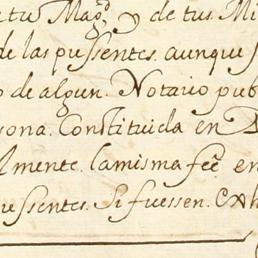 tu Magd y de tus Mi
de las pressentes. aunque
de algun. Notario pub
sona. Constituida en
lmente. la misma fee en
ressentes. Si fuessen. exh